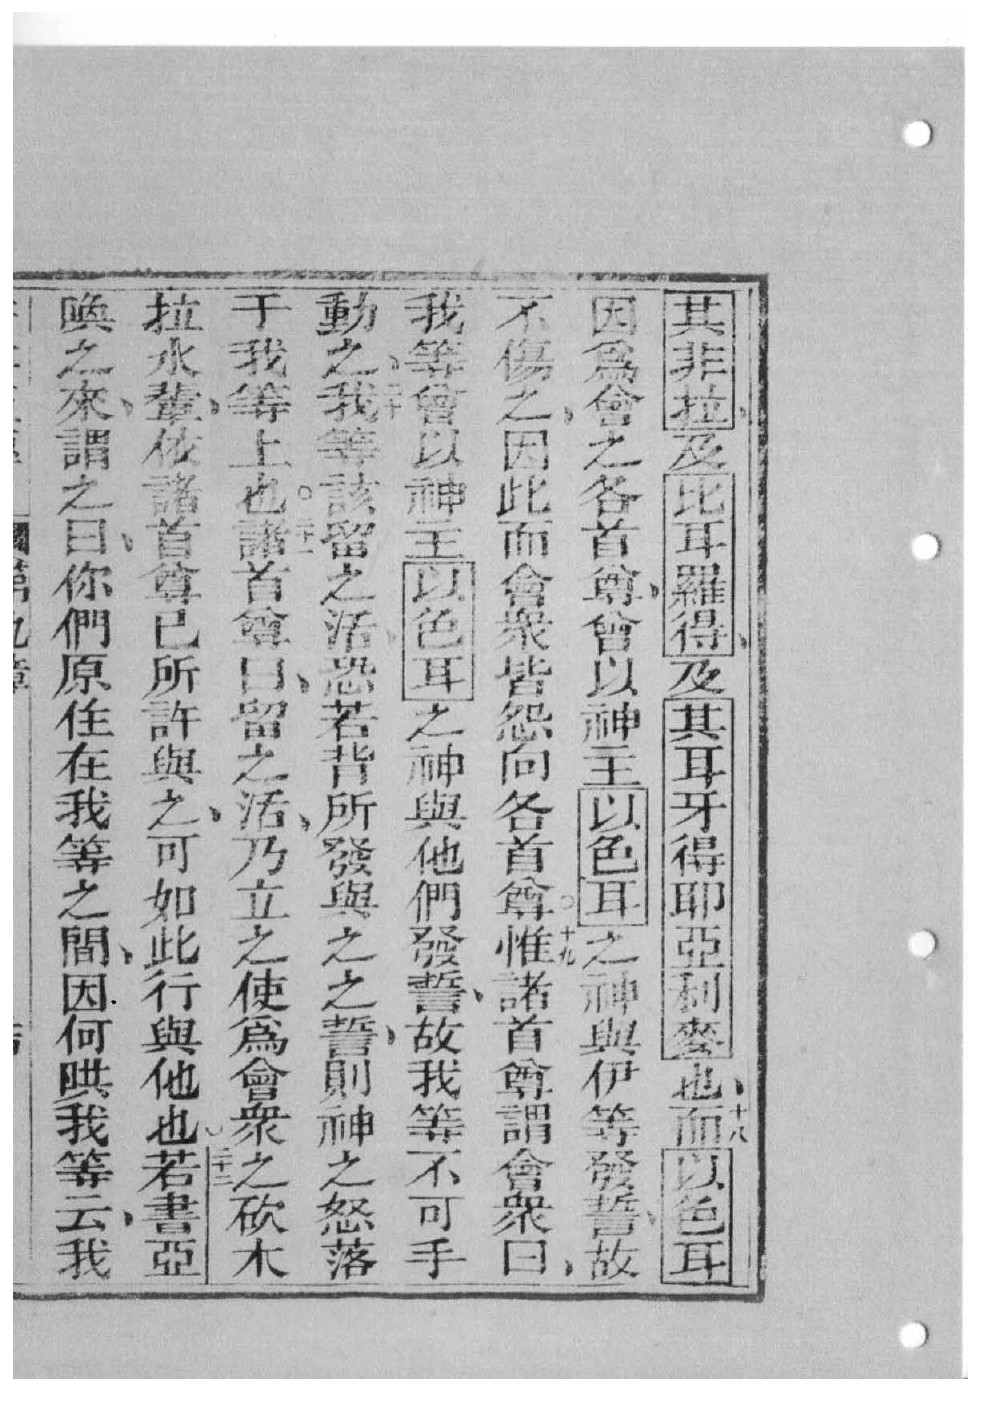 其非拉及比耳羅得及其耳牙得耶亞利麥也十八而以色耳
因爲會之各首尊曾以神主以色耳之神與伊等發誓故
不傷之因此而會衆皆怨向各首尊○十九惟諸首尊謂會衆曰
我等曾以神主以色耳之神與他們發誓故我等不可手
動之二十我等該留之活恐若背所發與之之誓則神之怒落
于我等上也○二十一諸首尊曰留之活乃立之使爲會衆之砍木
拉水輩依諸首尊已所許與之可如此行與他也○二十二若書亞
喚之來謂之曰你們原住在我等之間因何哄我等云我
第九章